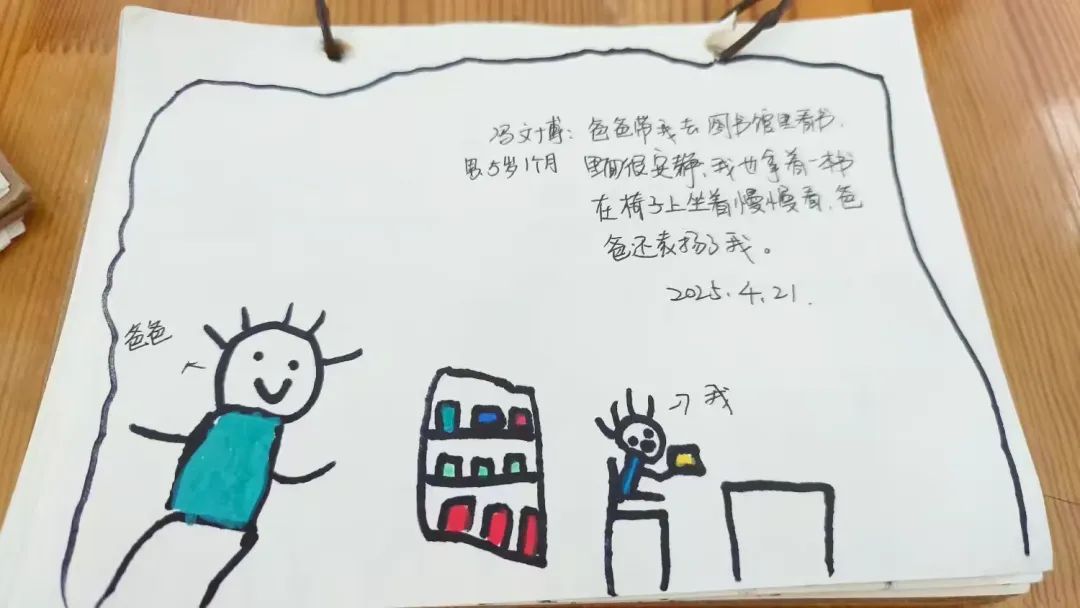 冯文博：爸爸带我去图书馆里看书，
男5岁1个月 里面很安静，我也拿着一本书
在椅子上坐着慢慢看，爸
爸还表扬了我。
2025.4.21.
爸爸
我